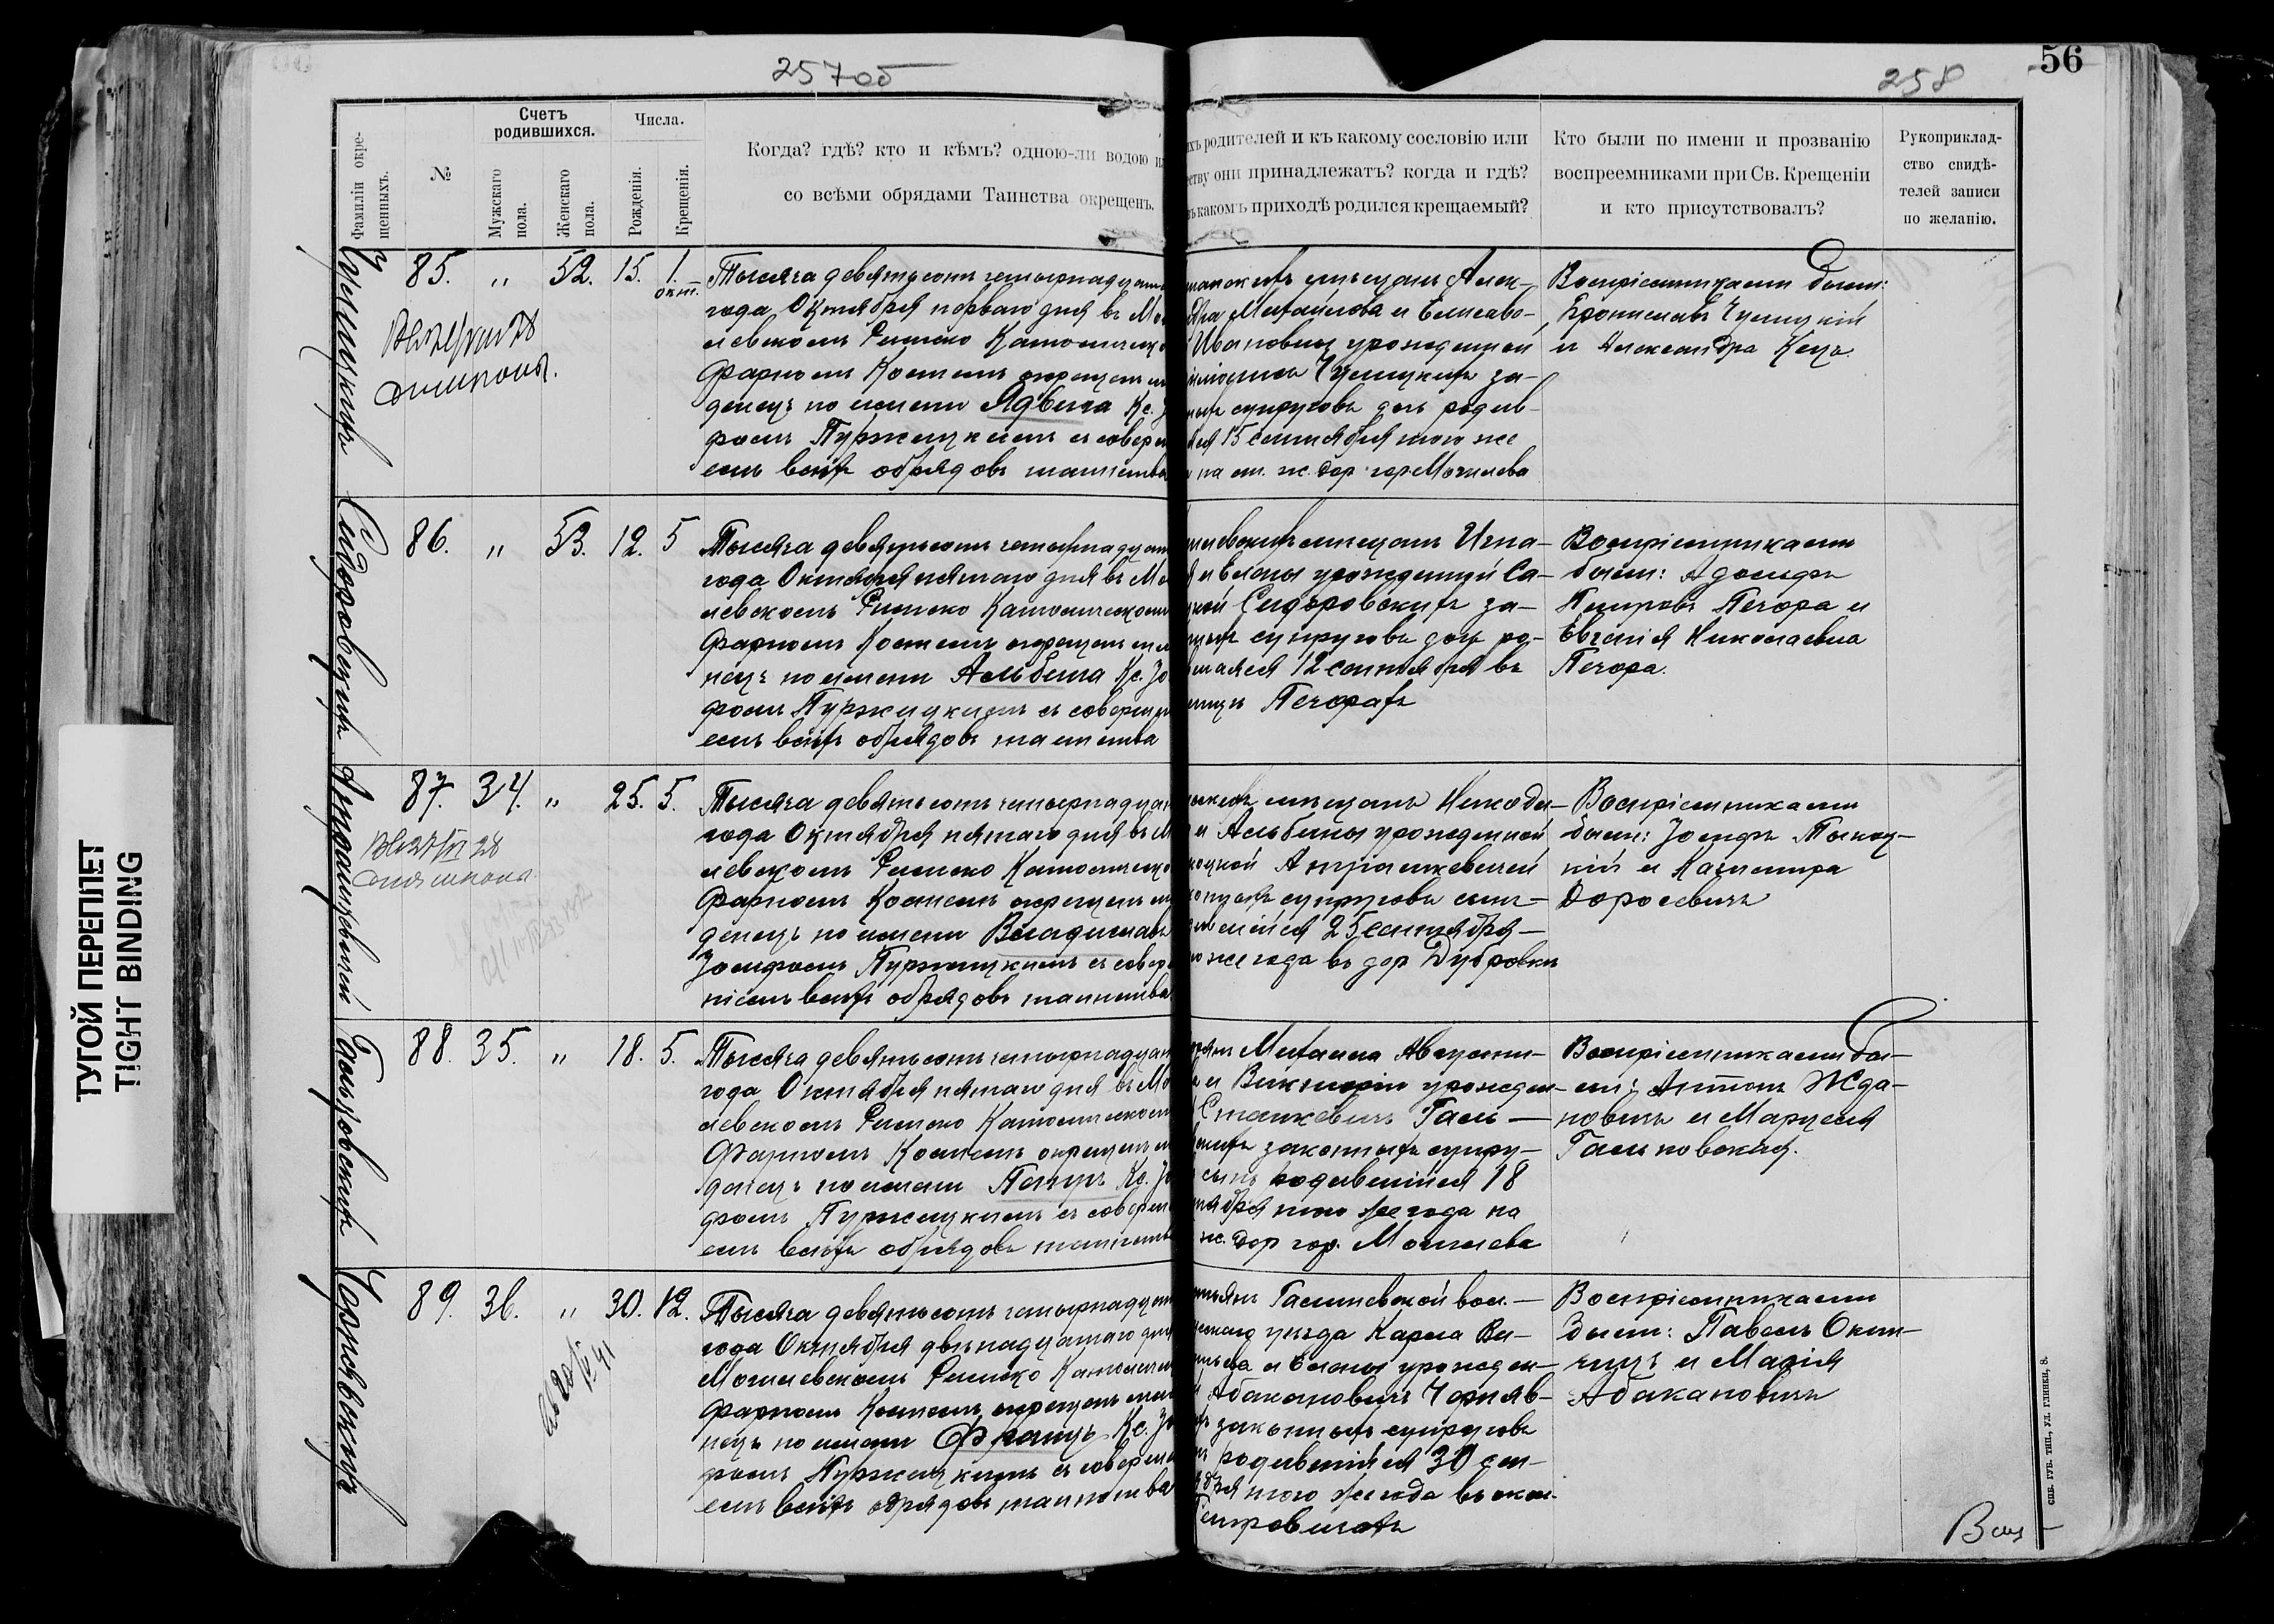 257об
258
56
Фамиліи окре-
щенныхъ.
№
Счетъ
родившихся.
Мужскаго
пола.
Женскаго
пола.
Числа.
Рожденія.
Крещенія.
Когда? гдѣ? кто и кѣмъ? одною-ли водою и
со всѣми обрядами Таинства окрещенъ.
ихъ родителей и къ какому сословію или
еству они принадлежатъ? когда и гдѣ?
въ какомъ приходѣ родился крещаемый?
Кто были по имени и прозванію
воспреемниками при Св. Крещеніи
и кто присутствовалъ?
Рукоприклад-
ство свидѣ-
телей записи
по желанію.
85. " 52. 15. 1.
окт.
Тысяча девятьсотъ четырнадцат
года Октября перваго дня въ Мо
левскомъ Римско Католическо
Фарномъ Костелѣ окрещенъ м
денецъ по имени Ядвига Кс. І
фомъ Пуржицкимъ съ соверш
емъ всѣхъ обрядовъ таинства
мѣщанъ Алек-
Михайлова и Елисаве-
Ивановны урожденной
за-
супруговъ дочь родив-
ся 15 сентября того же
на ст. ж. дор. гор. Могилева
Воспріемниками были:
Брониславъ
и Александра
Сидоровскихъ
86. " 53. 12. 5
Тысяча девятьсотъ четырнадцат
года Октября пятаго дня въ Мо
левскомъ Римско Католическомъ
Фарномъ Костелѣ окрещенъ мла
нецъ по имени Альбина Кс. Іо
фомъ Пуржицкимъ съ соверш
емъ всѣхъ обрядовъ таинства
мѣщанъ Игна-
и Елены урожденной Са-
Сидоровскихъ за-
супруговъ дочь ро-
12 сентября въ
Печорахъ
Воспріемниками
были: Адольфъ
Петровъ Печора и
Евгенія Николаевна
Печора.
87. 34. " 25. 5.
Тысяча девятьсотъ четырнадцат
года Октября пятаго дня въ М
левскомъ Римско Католическо
Фарномъ Костелѣ окрещенъ м
денецъ по имени Владиславъ
Іосифомъ Пуржицкимъ съ совер
ніемъ всѣхъ обрядовъ таинства
мѣщанъ Никоди-
и Альбины урожденной
супруговъ сынъ-
25 сентября-
же года въ дер Дубровки
Воспріемниками
были: Іосифъ
кій и Казимира
Доросевичъ
88. 35. " 18. 5.
Тысяча девятьсотъ четырнадцат
года Октября пятаго дня въ Мо
левскомъ Римско Католическомъ
Фарномъ Костелѣ окрещенъ м
денецъ по имени Петръ Кс. Іо
фомъ Пуржицкимъ съ соверш
емъ всѣхъ обрядовъ таинства
Михаила Августи-
и Викторіи урожден-
Станкевичъ Галь-
законныхъ супру-
сынъ родившійся 18
тября того же года на
ж. дор гор. Могилева
Воспріемниками бы-
ли: Антонъ Жда-
новичъ и Марцеля
Гальковская.
Чернявскихъ
89. 36. " 30. 12.
Тысяча девятьсотъ четырнадцат
года Октября двѣнадцатаго дня
Могилевскомъ Римско Католич
Фарномъ Костелѣ окрещенъ мла
нецъ по имени Францъ Кс. Іо
фомъ Пуржицкимъ съ соверш
емъ всѣхъ обрядовъ таинства
вол.-
уѣзда Карла Ви-
и Елены урожден-
Абакановичъ Черняв-
законныхъ супруговъ
родившійся 30 сен-
бря того же года въ окол.
Воспріемниками
были: Павелъ
и Марія
Абакановичъ
ТУГОЙ ПЕРЕПЛЕТ
TIGHT BINDING
СПБ. ГУБ. ТИП., УЛ. ГЛИНКИ, 8.